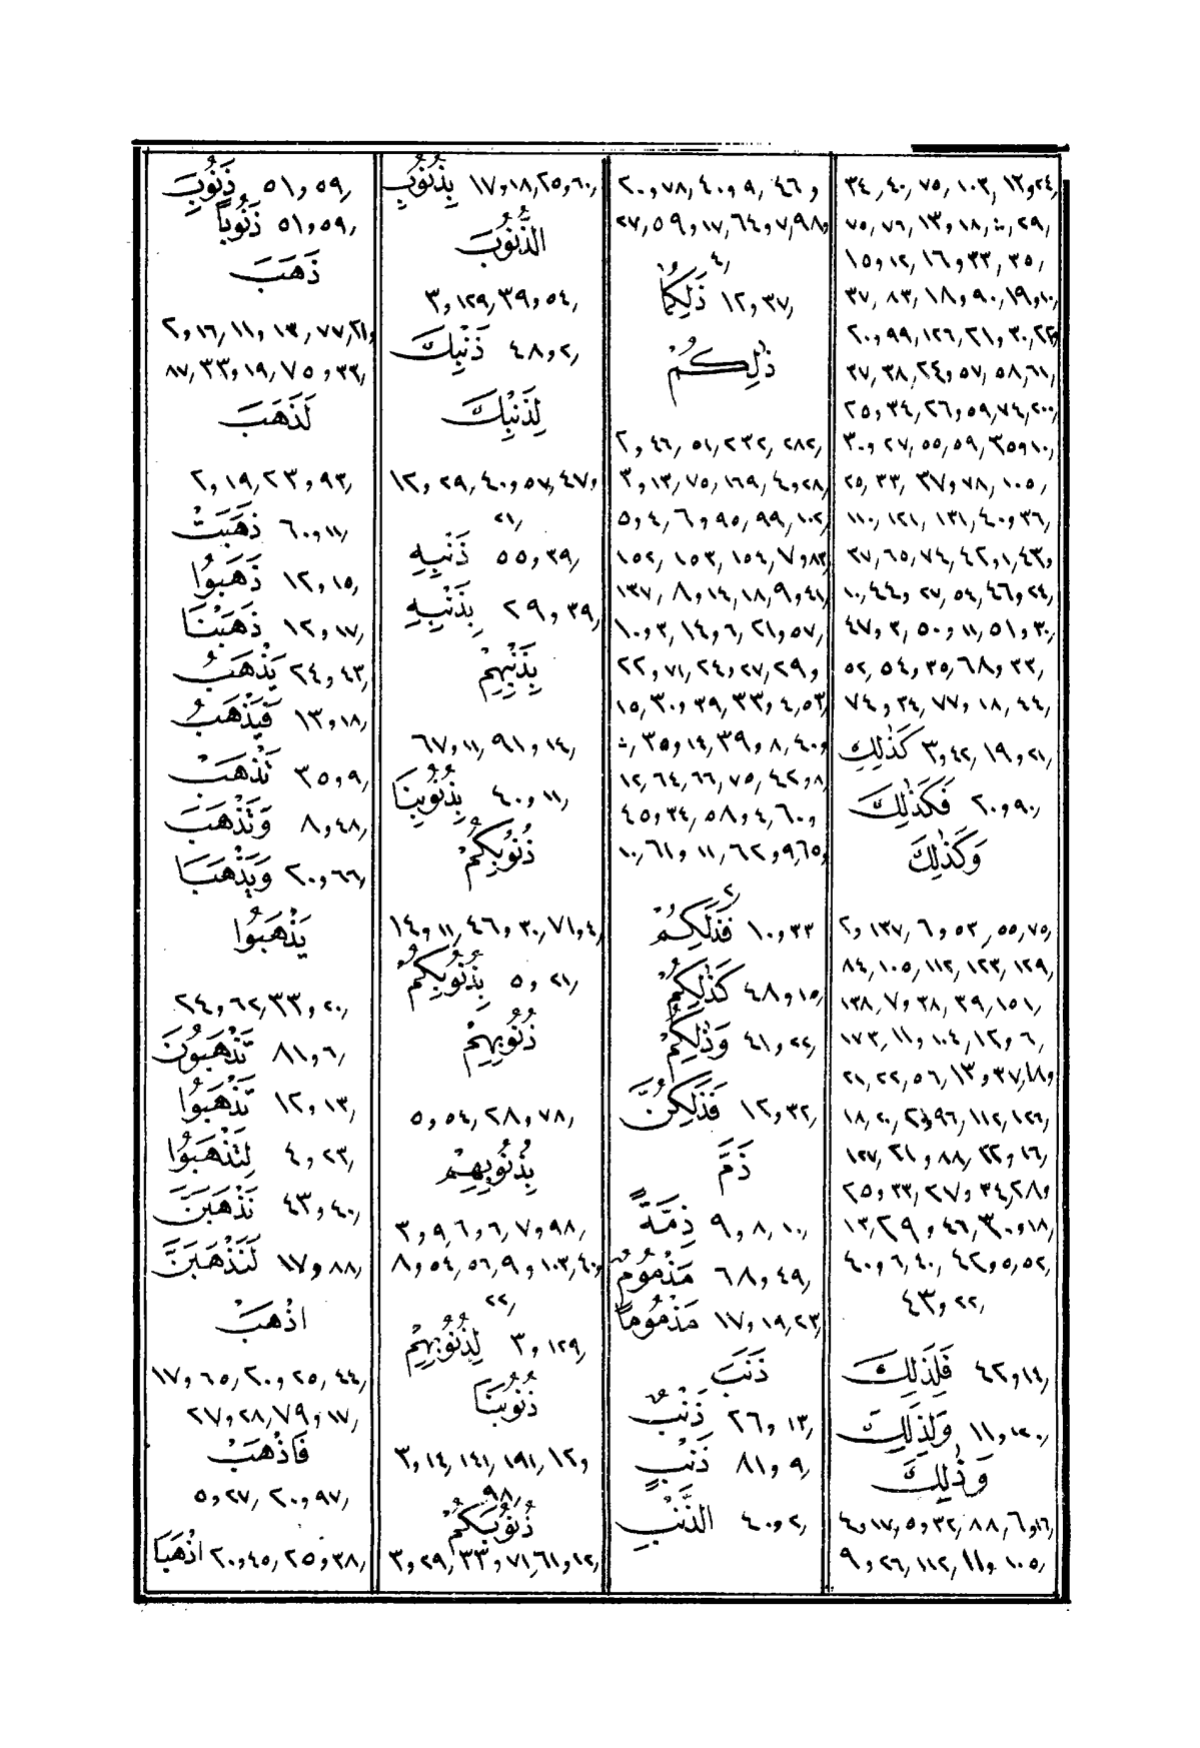 ٣٤٫ ٤٠٫ ٧٥٫ ١٠٣٫ ١٢و٢٤٫
٧٥٫ ٧٦٫ ١٣و١٨٫ ٢٩٫
١٥و١٢٫ ١٦و٣٣٫ ٣٥٫
٣٧٫ ٨٣٫ ١٨و٩٠٫ ١٩و١٠٫
٢٠و٩٩٫ ١٢٦٫ ٢١٫ ٣٠٫ ٢٢و
٣٧٫ ٣٨٫ ٢٤و٥٧٫ ٥٨٫ ٦١٫
٢٥و٣٤٫ ٢٦و٥٩٫ ٧٤٫ ٢٠٠٫
٣٠و٢٧٫ ٥٥٫ ٥٩٫ ٣٥و١٠٫
٢٥٫ ٣٣٫ ٣٧و٧٨٫ ١٠٥٫
١١٠٫ ١٢١٫ ١٣١٫ ٤٠و٣٦٫
٣٧٫ ٦٥٫ ٧٤٫ ٤٢و١٫ ٤٣و
١٠٫ ٤٤و٢٧٫ ٥٤٫ ٤٦و٢٤٫
٤٧و٣٫ ٥٠و١١٫ ٥١و٣٠٫
٥٢٫ ٥٤٫ ٣٥٫ ٦٨و٣٣٫
٧٤و٣٤٫ ٧٧و١٨٫ ٤٤٫
كَذٰلِكَ ٣و٤٢٫ ١٩و٢١٫
فَكَذٰلِكَ ٢٠و٩٠٫
وَكَذٰلِكَ
٢و١٣٧٫ ٦و٥٣٫ ٥٥٫ ٧٥٫
٨٤٫ ١٠٥٫ ١١٢٫ ١٢٣٫ ١٢٩٫
١٣٨٫ ٧و٣٨٫ ٣٩٫ ١٥١٫
١٧٣٫ ١١و١٠٤٫ ١٢و٦٫
٢١٫ ٢٢٫ ٥٦٫ ١٣و٣٧٫ ١٨و
١٨٫ ٢٠و٩٦٫ ١١٣٫ ١٢٦٫
١٢٧٫ ٢١و٨٨٫ ٢٢و١٦٫
٢٥و٣٣٫ ٢٧و٣٤٫ ٢٨و
١٣٫ ٢٩و٤٦٫ ٣٠و١٨٫
٤٠و٦٫ ٤٠٫ ٤٢و٥٫ ٥٢٫
٤٣و٢٢٫
فَلِذٰلِكَ ٤٢و١٤٫
وَلِذٰلِكَ ١١و١٢٠٫
وَذٰلِكَ
٤و١٧٫ ٥و٣٢٫ ٨٨٫ ٦و١٦٫
٩و٢٦٫ ١١٢٫ ١١و١٠٥٫
٢٠و٧٨٫ ٤٠و٩٫ ٤٦و
٢٧٫ ٥٩و١٧٫ ٦٤و٧٫ ٩٨و
٤٫
ذٰلِكُمَا ١٢و٣٧٫
ذٰلِكُمْ
٢و٤٦٫ ٥١٫ ٢٣٢٫ ٢٨٢٫
٣و١٣٫ ٧٥٫ ١٦٩٫ ٤و٢٨٫
٥و٤٫ ٦و٩٥٫ ٩٩٫ ١٠٢٫
١٥٢٫ ١٥٣٫ ١٥٤٫ ٧و٨٣٫
١٣٧٫ ٨و١٤٫ ١٨٫ ٩و٤١٫
١٠و٣٫ ١٤و٦٫ ٢١و٥٧٫
٢٢و٧١٫ ٢٤و٢٧٫ ٢٩و
١٥٫ ٣٠و٣٩٫ ٣٣و٤٫ ٥٣٫
٣٥و١٤٫ ٣٩و٨٫ ٤٠و
١٢٫ ٦٤٫ ٦٦٫ ٧٥٫ ٤٢و٨
٤٥و٣٤٫ ٥٨و٤٫ ٦٠و
١٠٫ ٦١و١١٫ ٦٢و٩٫ ٦٥و
٢٫
فَذٰلِكُمْ ١٠و٣٣
كَذٰلِكُمْ ٤٨و١٥٫
وَذٰلِكُمْ ٤١و٢٢٫
فَذٰلِكُنَّ ١٢و٣٢٫
ذَمَّ
ذِمَّةً ٩و٨٫ ١٠٫
مَذْمُومٌ ٦٨و٤٩٫
مَذْمُوماً ١٧و١٩٫ ٢٣٫
ذَنَبَ
ذَنْبٌ ٢٦و١٣٫
ذَنْبٍ ٨١و٩٫
الذَّنْبِ ٤٠و٢٫
بِذُنُوبِ ١٧و١٨٫ ٢٥و٦٠٫
الذُّنُوبَ
٣و١٢٩٫ ٣٩و٥٤٫
ذَنْبِكَ ٤٨و٢٫
لِذَنْبِكَ
١٢و٢٩٫ ٤٠و٥٧٫ ٤٧و
٢١٫
ذَنْبِهِ ٥٥و٣٩٫
بِذَنْبِهِ ٢٩و٣٩٫
بِذَنْبِهِمْ
٦٧و١١٫ ٩١و١٤٫
بِذُنُوبِنَا ٤٠و١١٫
ذُنُوبِكُمْ
١٤و١١٫ ٤٦و٣٠٫ ٧١و٤٫
بِذُنُوبِكُمْ ٥و٢١٫
ذُنُوبِهِمْ
٥و٥٤٫ ٢٨و٧٨٫
بِذُنُوبِهِمْ
٣و٩٫ ٦و٦٫ ٧و٩٨٫
٨و٥٤٫ ٥٦٫ ٩و١٠٣٫ ٤٠و
٢٢٫
لِذُنُوبِهِمْ ٣و١٢٩٫
ذُنُوبَنَا
٣و١٤٫ ١٤١٫ ١٩١٫ ١٢و
٩٨٫
ذُنُوبَكُمْ
٣و٢٩٫ ٣٣و٧١٫ ٦١و١٢٫
ذَنُوبِ ٥١و٥٩٫
ذَنُوباً ٥١و٥٩٫
ذَهَبَ
٢و١٦٫ ١١و١٣٫ ٧٧٫ ٢١و
٨٧٫ ٣٣و١٩٫ ٧٥و٣٣٫
لَذَهَبَ
٢٫ ١٩٫ ٢٣و٩٣٫
ذَهَبَتْ ٦٠و١١٫
ذَهَبُوا ١٢و١٥٫
ذَهَبْنَا ١٢و١٧٫
يَذْهَبُ ٢٤و٤٣٫
فَيَذْهَبُ ١٣و١٨٫
تَذْهَبْ ٣٥و٩٫
وَتَذْهَبَ ٨و٤٨٫
وَيَذْهَبَا ٢٠و٦٦٫
يَذْهَبُوا
٢٤و٦٢٫ ٣٣و٢٠٫
تَذْهَبُونَ ٨١و٦٫
تَذْهَبُوا ١٢و١٣٫
لِتَذْهَبُوا ٤و٢٣٫
نَذْهَبَنَّ ٤٣و٤٠٫
لَنَذْهَبَنَّ ١٧و٨٨٫
اذْهَبْ
١٧و٦٥٫ ٢٠و٢٥٫ ٤٤٫
٢٧و٢٨٫ ٧٩و١٧٫
فَاذْهَبْ
٥و٢٧٫ ٢٠و٩٧٫
اذْهَبَا ٢٠و٤٥٫ ٢٥و٣٨٫